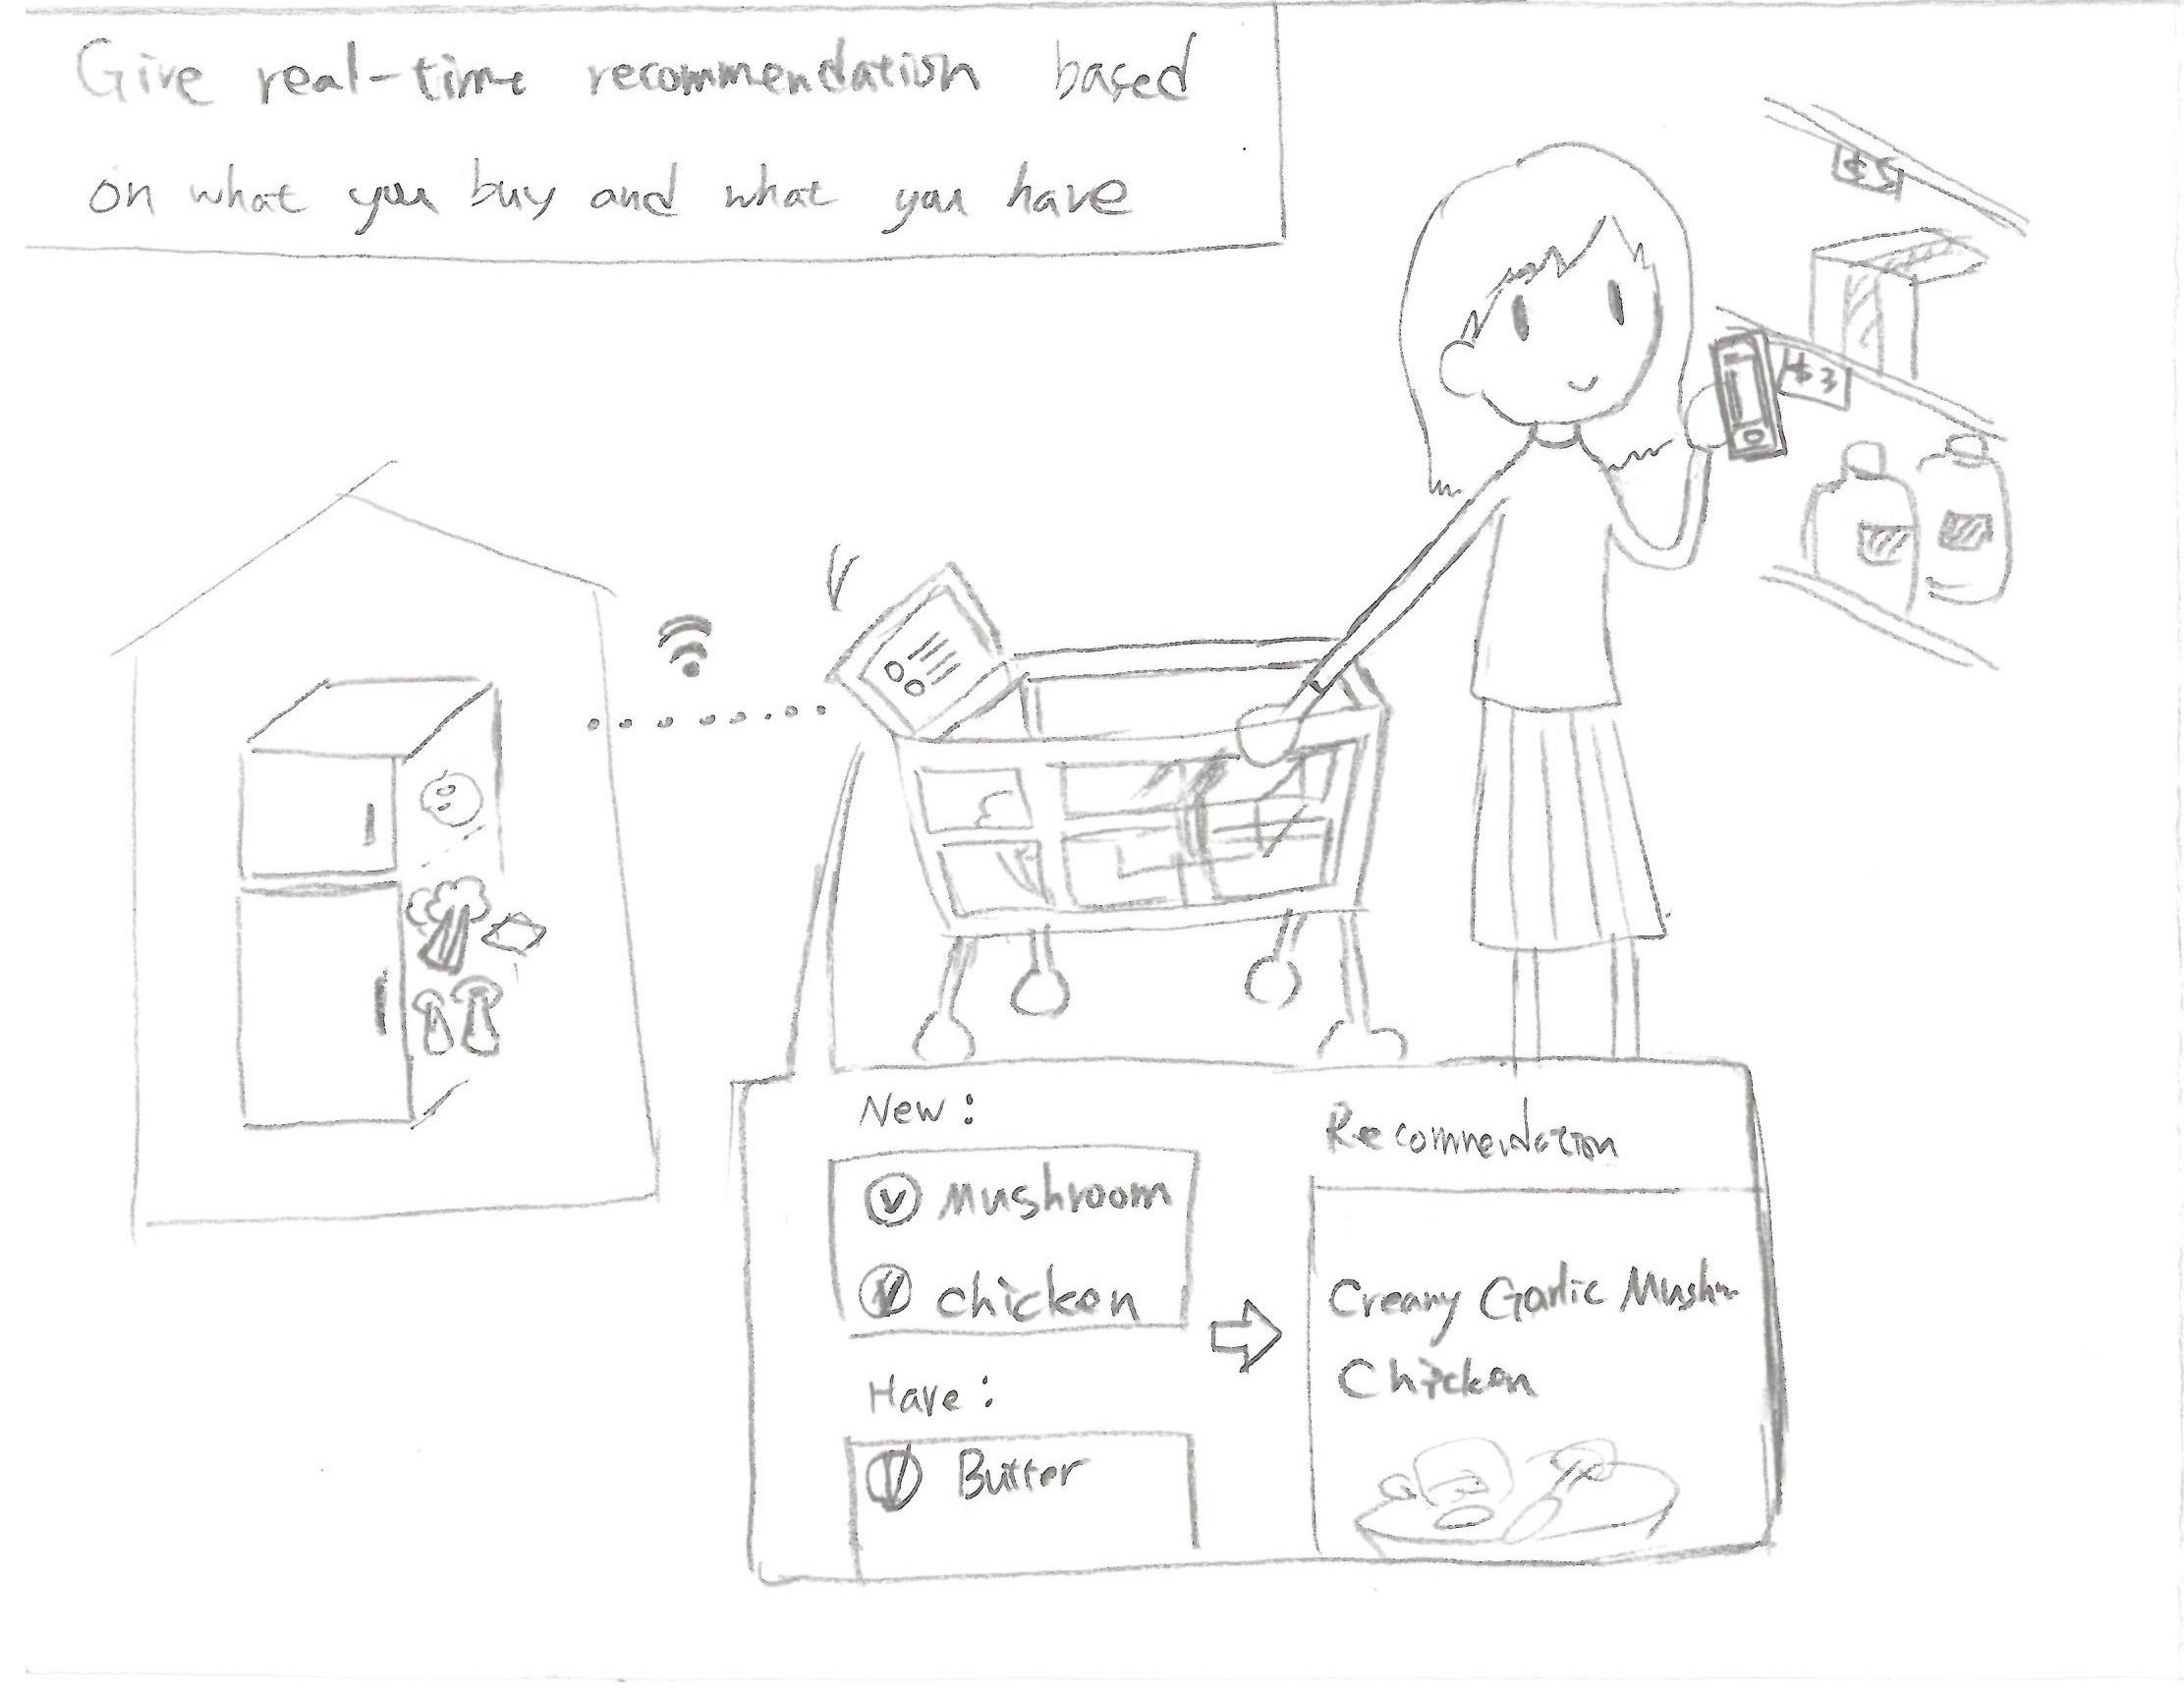 Give real-time recommendation based
on what you buy and what you have
$5
$3
New:
Mushroom
chicken
Have:
Butter
Recommendation
Creamy Garlic Mush
Chicken